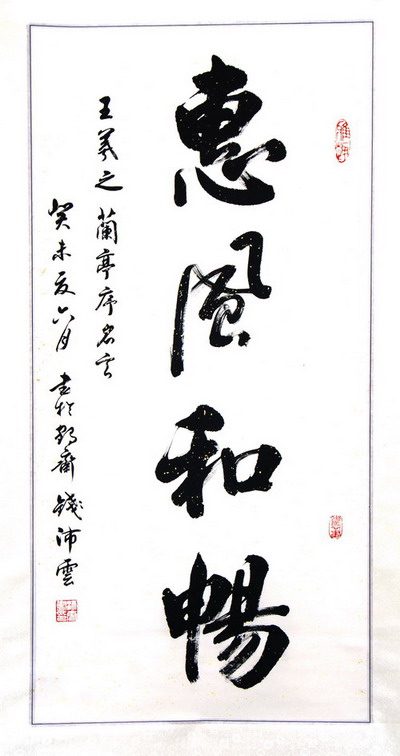 惠風和暢
王羲之蘭亭序名言
癸未夏六月書於齋錢沛雲